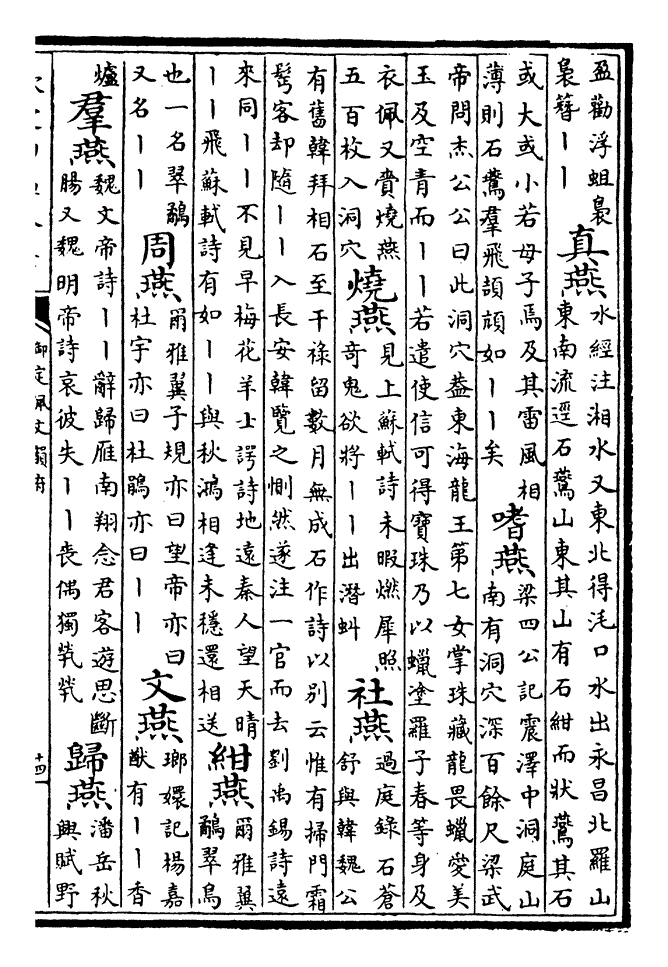 盈勸浮蛆裊
裊簪丨丨
真燕
水經注湘水又東北得㴑口水出永昌北羅山
東南流逕石鷰山東其山有石紺而狀鷰其石
或大或小若母子焉及其雷風相
薄則石鷰羣飛頡頏如丨丨矣
嗜燕
梁四公記震澤中洞庭山
南有洞穴深百餘尺梁武
帝問杰公公曰此洞穴葢東海龍王第七女掌珠藏龍畏蠟愛美
玉及空青而丨丨若遣使信可得寶珠乃以蠟塗羅子春等身及
衣佩又賫燒燕
五百枚入洞穴
燒燕
見上蘇軾詩未暇燃犀照
奇鬼欲將丨丨出潛虯
社燕
過庭錄石蒼
舒與韓魏公
有舊韓拜相石至干祿留數月無成石作詩以別云惟有掃門霜
髩客却隨丨丨入長安韓覽之惻然遂注一官而去劉禹錫詩遠
來同丨丨不見早梅花羊士諤詩地遠秦人望天晴
丨丨飛蘇軾詩有如丨丨與秋鴻相逢未穩還相送
紺燕
爾雅翼
鷸翠鳥
也一名翠鷸
又名丨丨
周燕
爾雅翼子規亦曰望帝亦曰
杜宇亦曰杜鵑亦曰丨丨
文燕
瑯嬛記楊嘉
猷有丨丨香
爐
羣燕
魏文帝詩丨丨辭歸雁南翔念君客遊思斷
腸又魏明帝詩哀彼失丨丨喪偶獨煢煢
歸燕
潘岳秋
興賦野
御定佩文韻府
十四